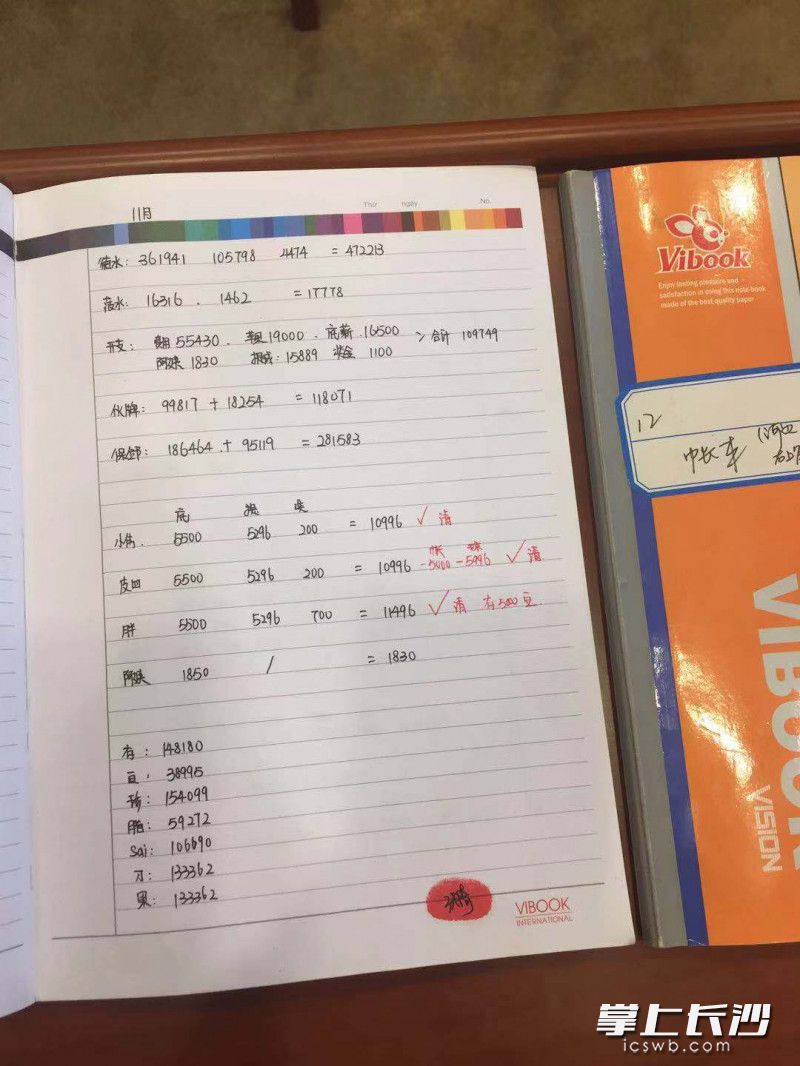 11月
Thứ ngày No.
水: 361941 105798 4474 = 472213
落水: 16316 . 1462 = 17778
开支: 55430 . 19000 . 底薪 . 16500 > 合计 109749
阿姨 1830 提成: 15889 奖金 1100
伙牌: 99817 + 18254 = 118071
186464 + 95119 = 281583
底 提 奖
小伟. 5500 5296 200 = 10996 ✓ 清
皮四 5500 5296 200 = 10996 -5000 -5996 ✓ 清
胖 5500 5296 700 = 11496 ✓ 清 有500豆
阿姨 1850 / = 1830
有: 148180
豆: 38995
154099
59272
Sai: 106690
刁: 133362
果: 133362
VIBOOK
INTERNATIONAL
Vibook
Enjoy lasting pleasure and
satisfaction in using this note book
made of the best quality paper
12
中长车
VIBOOK
VISION
掌上长沙
icswb.com